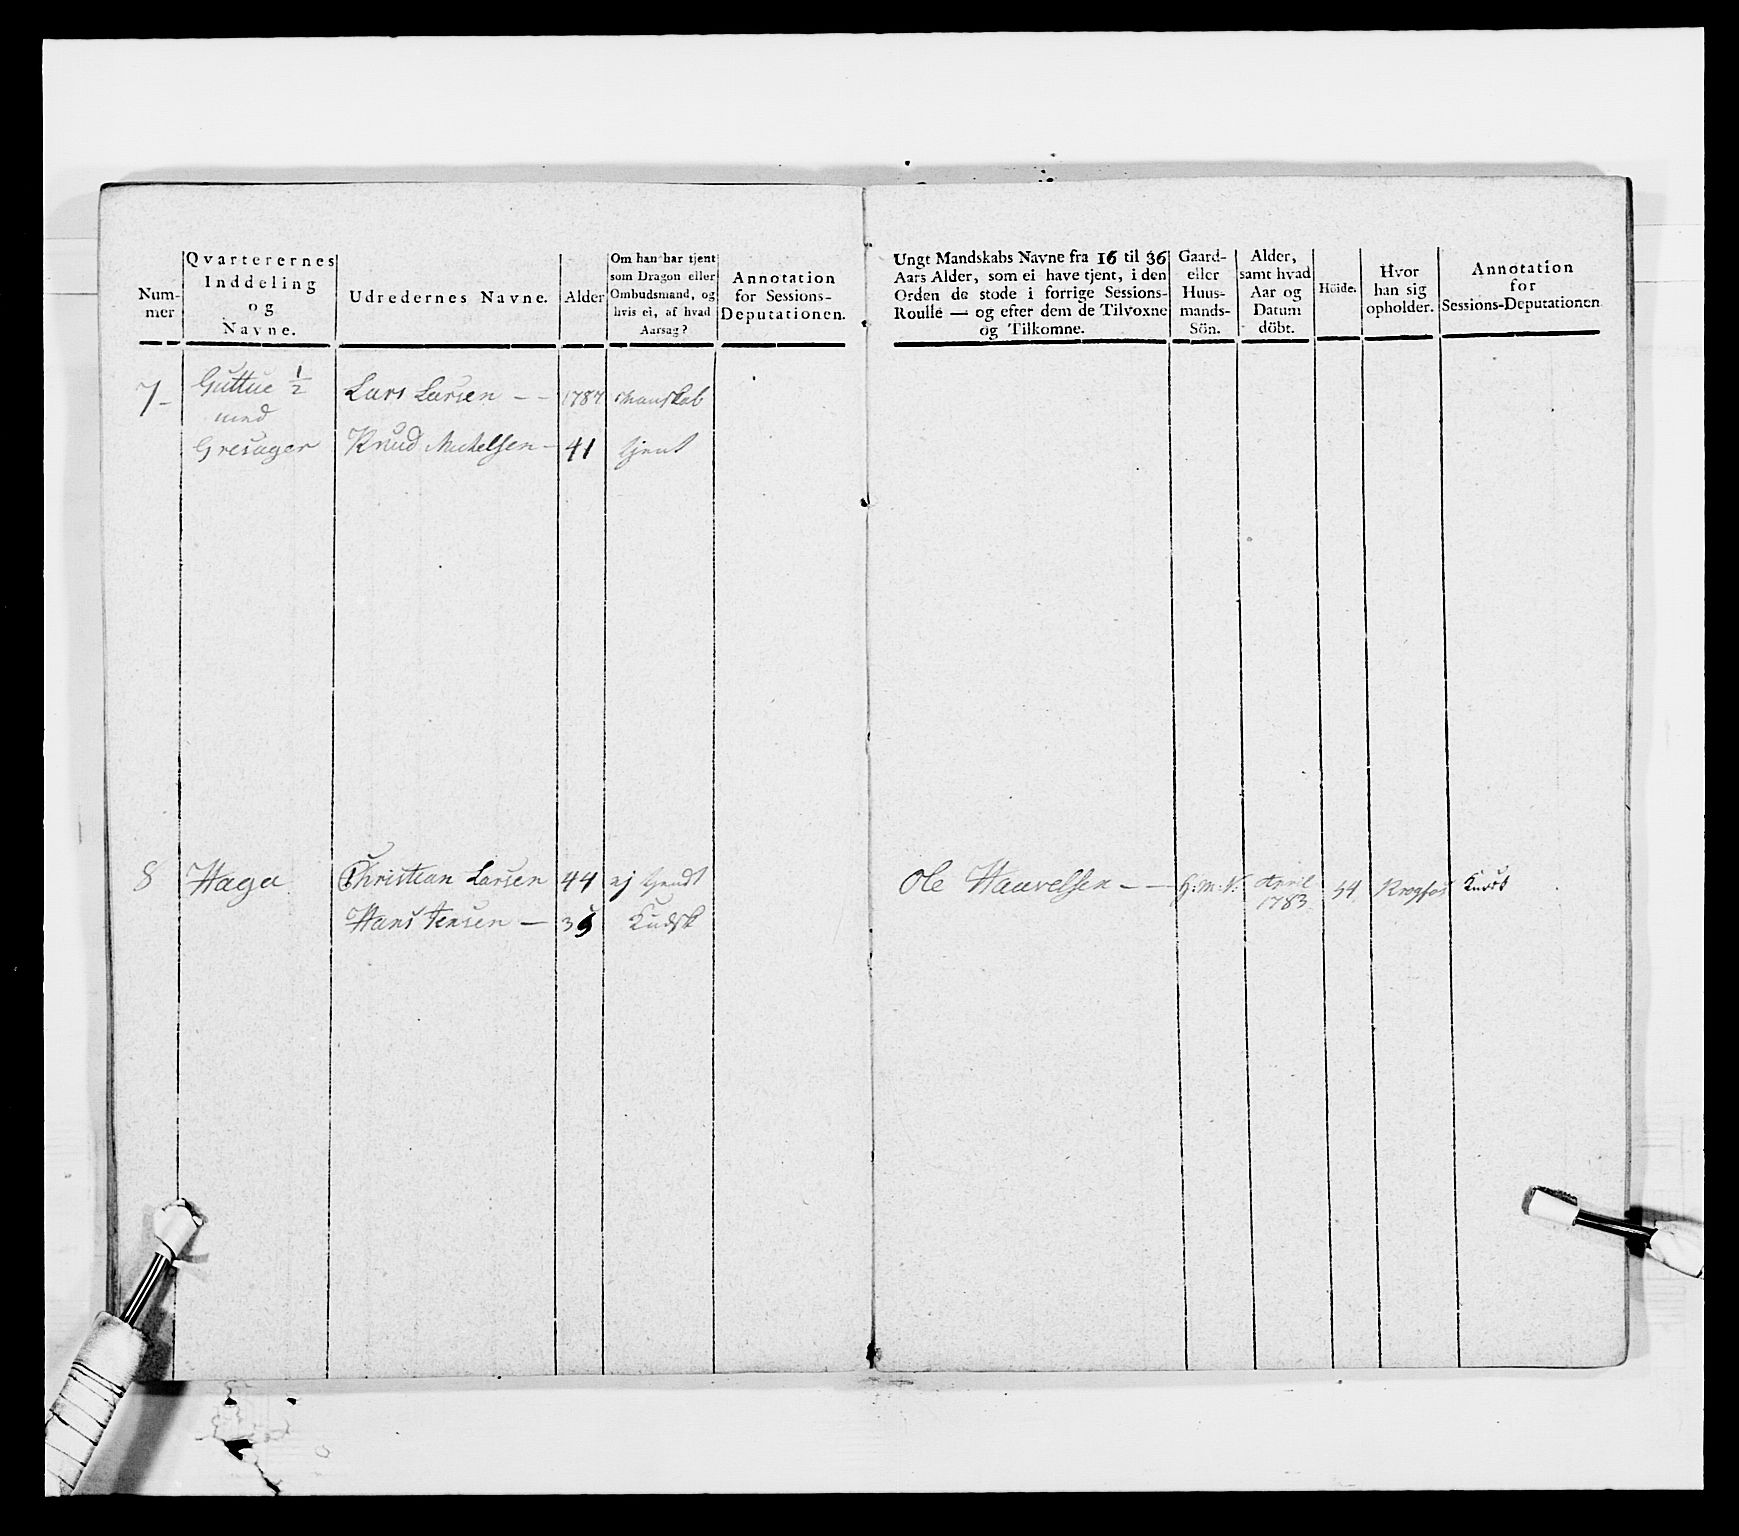 Num-
mer
Qvarterernes
Inddeling
og
Navne.
Udredernes Navne.
Alder
Om han har tjent
som Dragon eller
Ombudsmand, og
hvis ei, af hvad
Aarsag?
Annotation
for Sessions-
Deputationen.
Ungt Mandskabs Navne fra 16 til 36
Aars Alder, som ei have tjent, i den
Orden de stode i forrige Sessions-
Roulle — og efter dem de Tilvoxne
og Tilkomne.
Gaard-
eller
Huus-
mands-
Sön.
Alder,
samt hvad
Aar og
Datum
döbt.
Höide.
Hvor
han sig
opholder.
Annotation
for
Sessions-Deputationen.
7 Guttue 1/2 Lars Larsen 1787
med
Gresager Knud Michelsen 41 tjent
8 Haga Christian Larsen 44 ej tjendt
Hans Jensen 36 Kudsk
Ole Haavelsen April
1783 Krogfos Kudsk